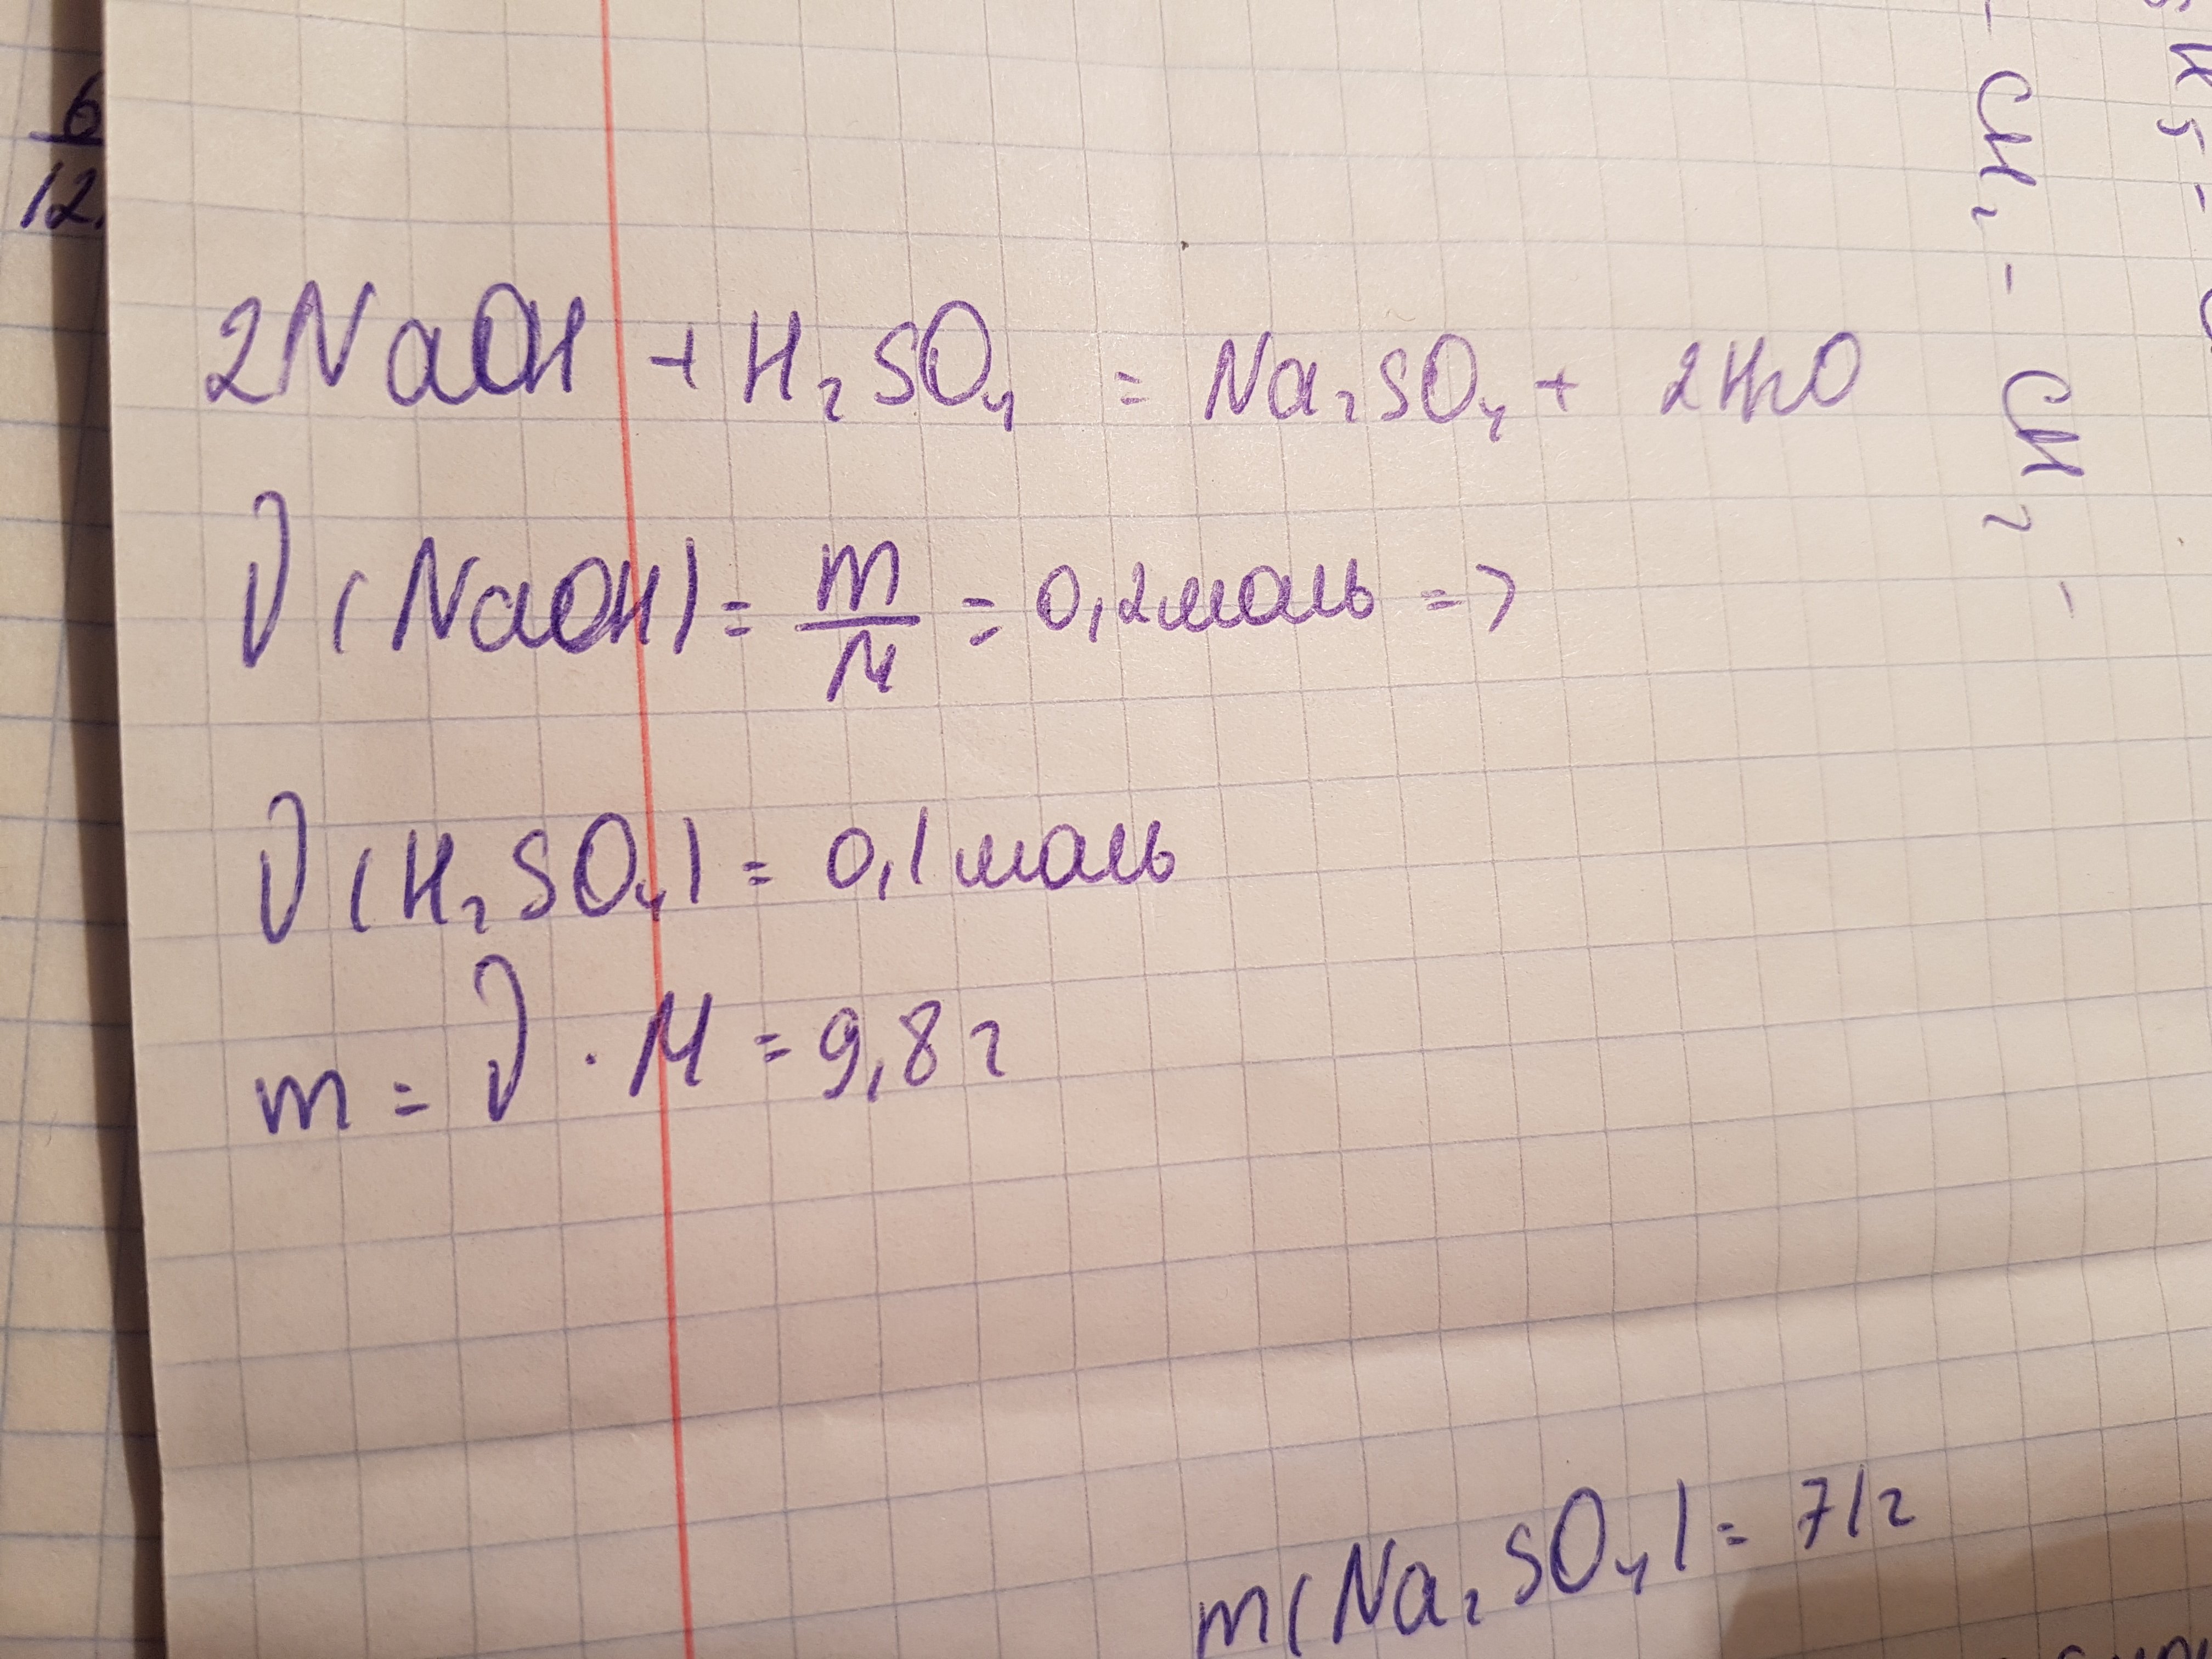 6
12.
2NaOH + H₂SO₄ = Na₂SO₄ + 2H₂O
ν(NaOH) = m/M = 0,2моль =>
ν(H₂SO₄) = 0,1моль
m = ν · M = 9,8г
m(Na₂SO₄) = 71г
- CH₂ - CH₂ -